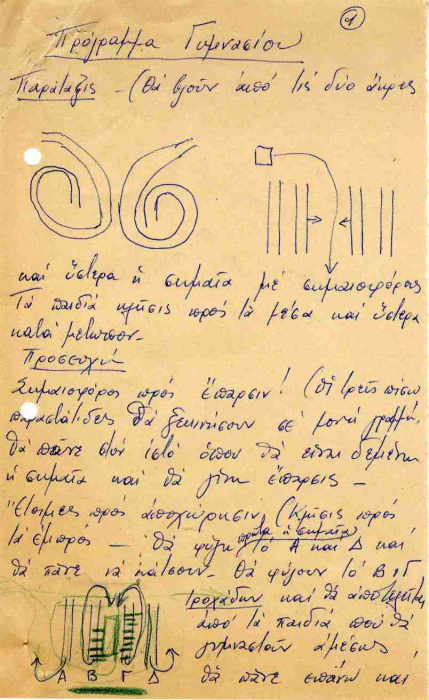 1
Πρόγραμμα Γυμνασίου
Παράταξις - (Θά βγοῦν ἀπό τίς δύο ἄκρες
καί ὕστερα ἡ σημαία μέ σημαιοφόρους
Τά παιδιά κλῆσις πρός τά μέσα καί ὕστερα
κατά μέτωπον-
Προσευχή
Σημαιοφόροι πρός ἔπαρσιν! (Οἱ τρεῖς πίσω
παραστάτιδες θά ξεκινήσουν σέ μονή γραμμή.
Θά πᾶνε στόν ἱστό ὅπου θά εἶναι δεμένη
ἡ σημαία καί θά γίνη ἔπαρσις -
Ἕτοιμες πρός ἀποχώρησιν (Κλῆσις πρός
τά ἐμπρός - Θά φύγη πρῶτα ἡ σημαία τό Α καί Δ καί
θά πᾶνε νά κάτσουν. Θά φύγουν τό Β καί Γ
τροχάδην καί θά
ἀπό τά παιδιά πού θά
γυμναστοῦν ἀμέσως
θά πᾶνε ἐπάνω καί
Α Β Γ Δ